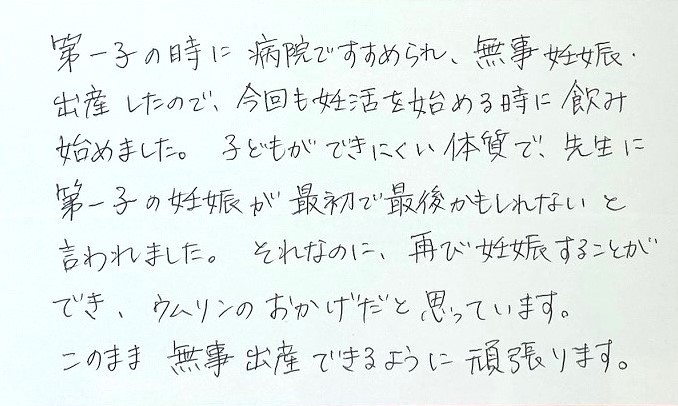 第一子の時に 病院ですすめられ、無事 妊娠・
出産 したので、今回も妊活を始める時に 飲み
始めました。 子どもが できにくい 体質で、先生に
第一子の妊娠が 最初で最後かもしれない と
言われました。 それなのに、再び妊娠することが
でき、ウムリンの おかげだと 思っています。
このまま 無事 出産 できるように 頑張ります。